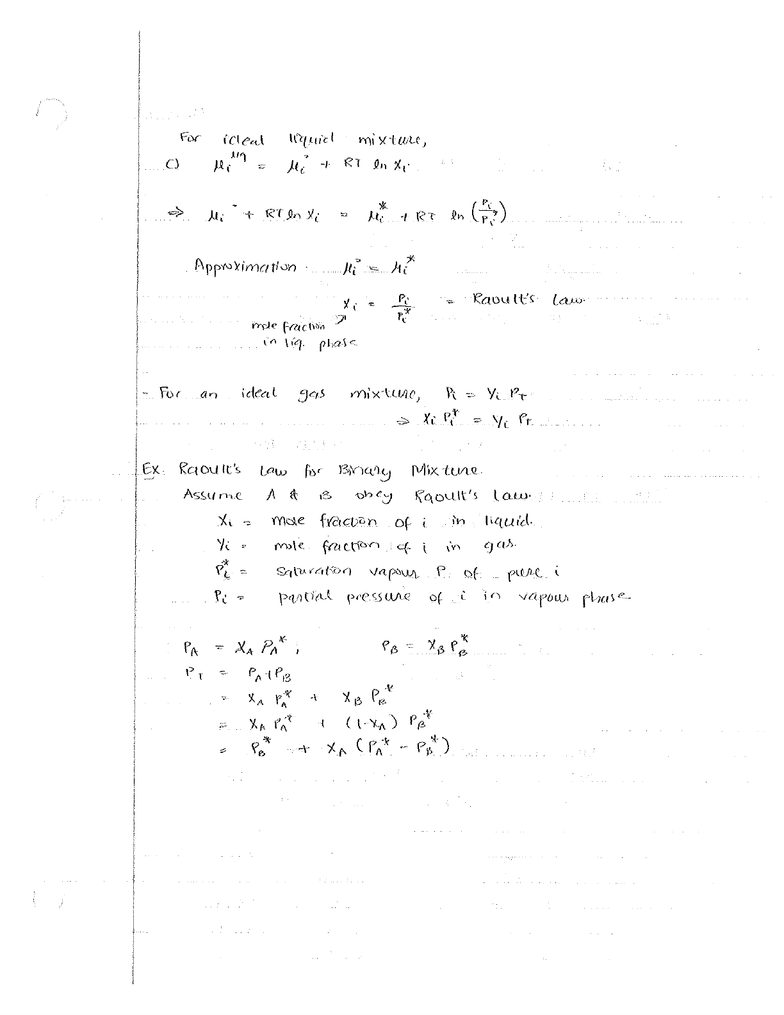 For ideal liquid mixture,
c) μᵢˡⁱq = μᵢ° + RT ln xᵢ
⇒ μᵢ° + RT ln xᵢ = μᵢ* + RT ln (Pᵢ/Pᵢ*)
Approximation μᵢ° = μᵢ*
xᵢ = Pᵢ/Pᵢ* = Raoult's Law.
mole fraction ↗
in liq. phase
- For an ideal gas mixture, Pᵢ = yᵢ P_T
⇒ xᵢ Pᵢ* = yᵢ P_T
Ex. Raoult's Law for Binary Mixture.
Assume A & B obey Raoult's Law.
xᵢ = mole fraction of i in liquid.
yᵢ = mole fraction of i in gas.
Pᵢ* = saturation vapour P. of pure i
Pᵢ = partial pressure of i in vapour phase.
P_A = x_A P_A* , P_B = x_B P_B*
P_T = P_A + P_B
= x_A P_A* + x_B P_B*
= x_A P_A* + (1-x_A) P_B*
= P_B* + x_A (P_A* - P_B*)